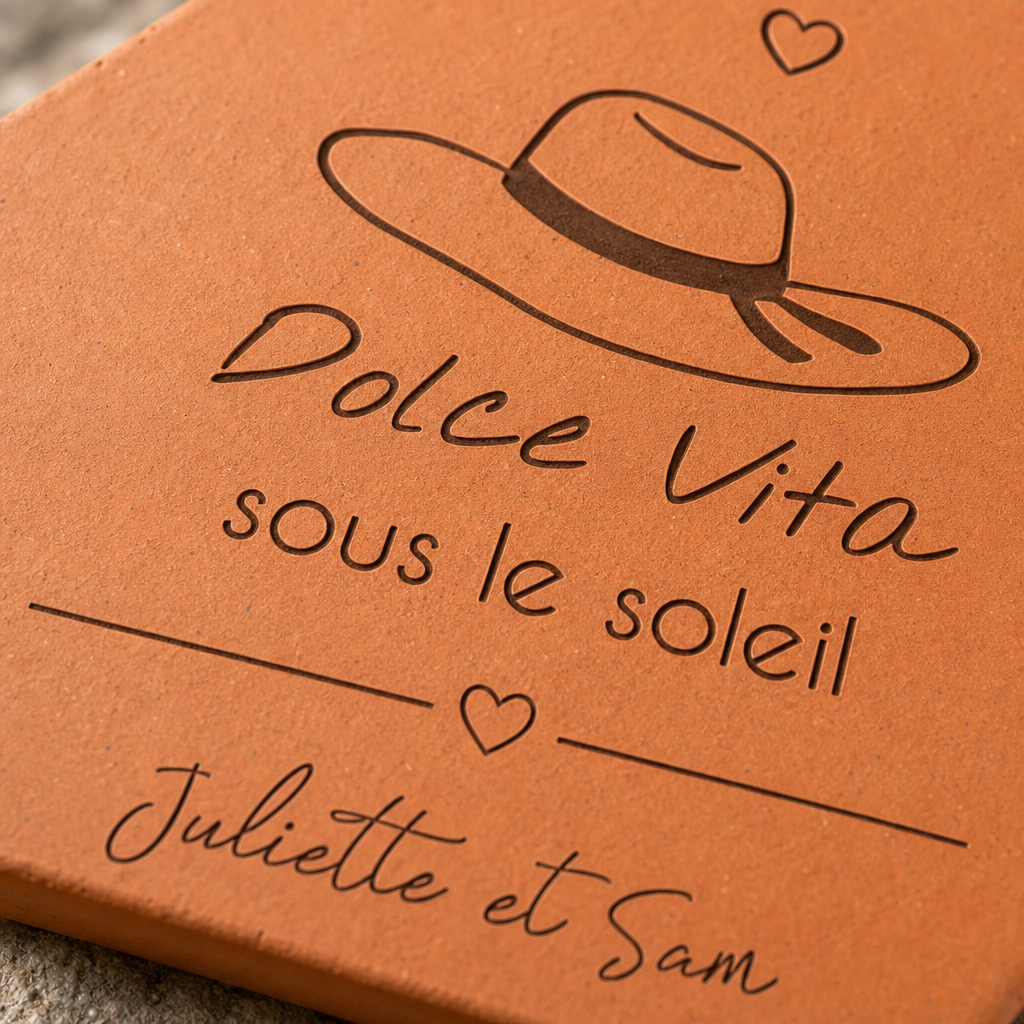 Dolce Vita
sous le soleil
Juliette et Sam